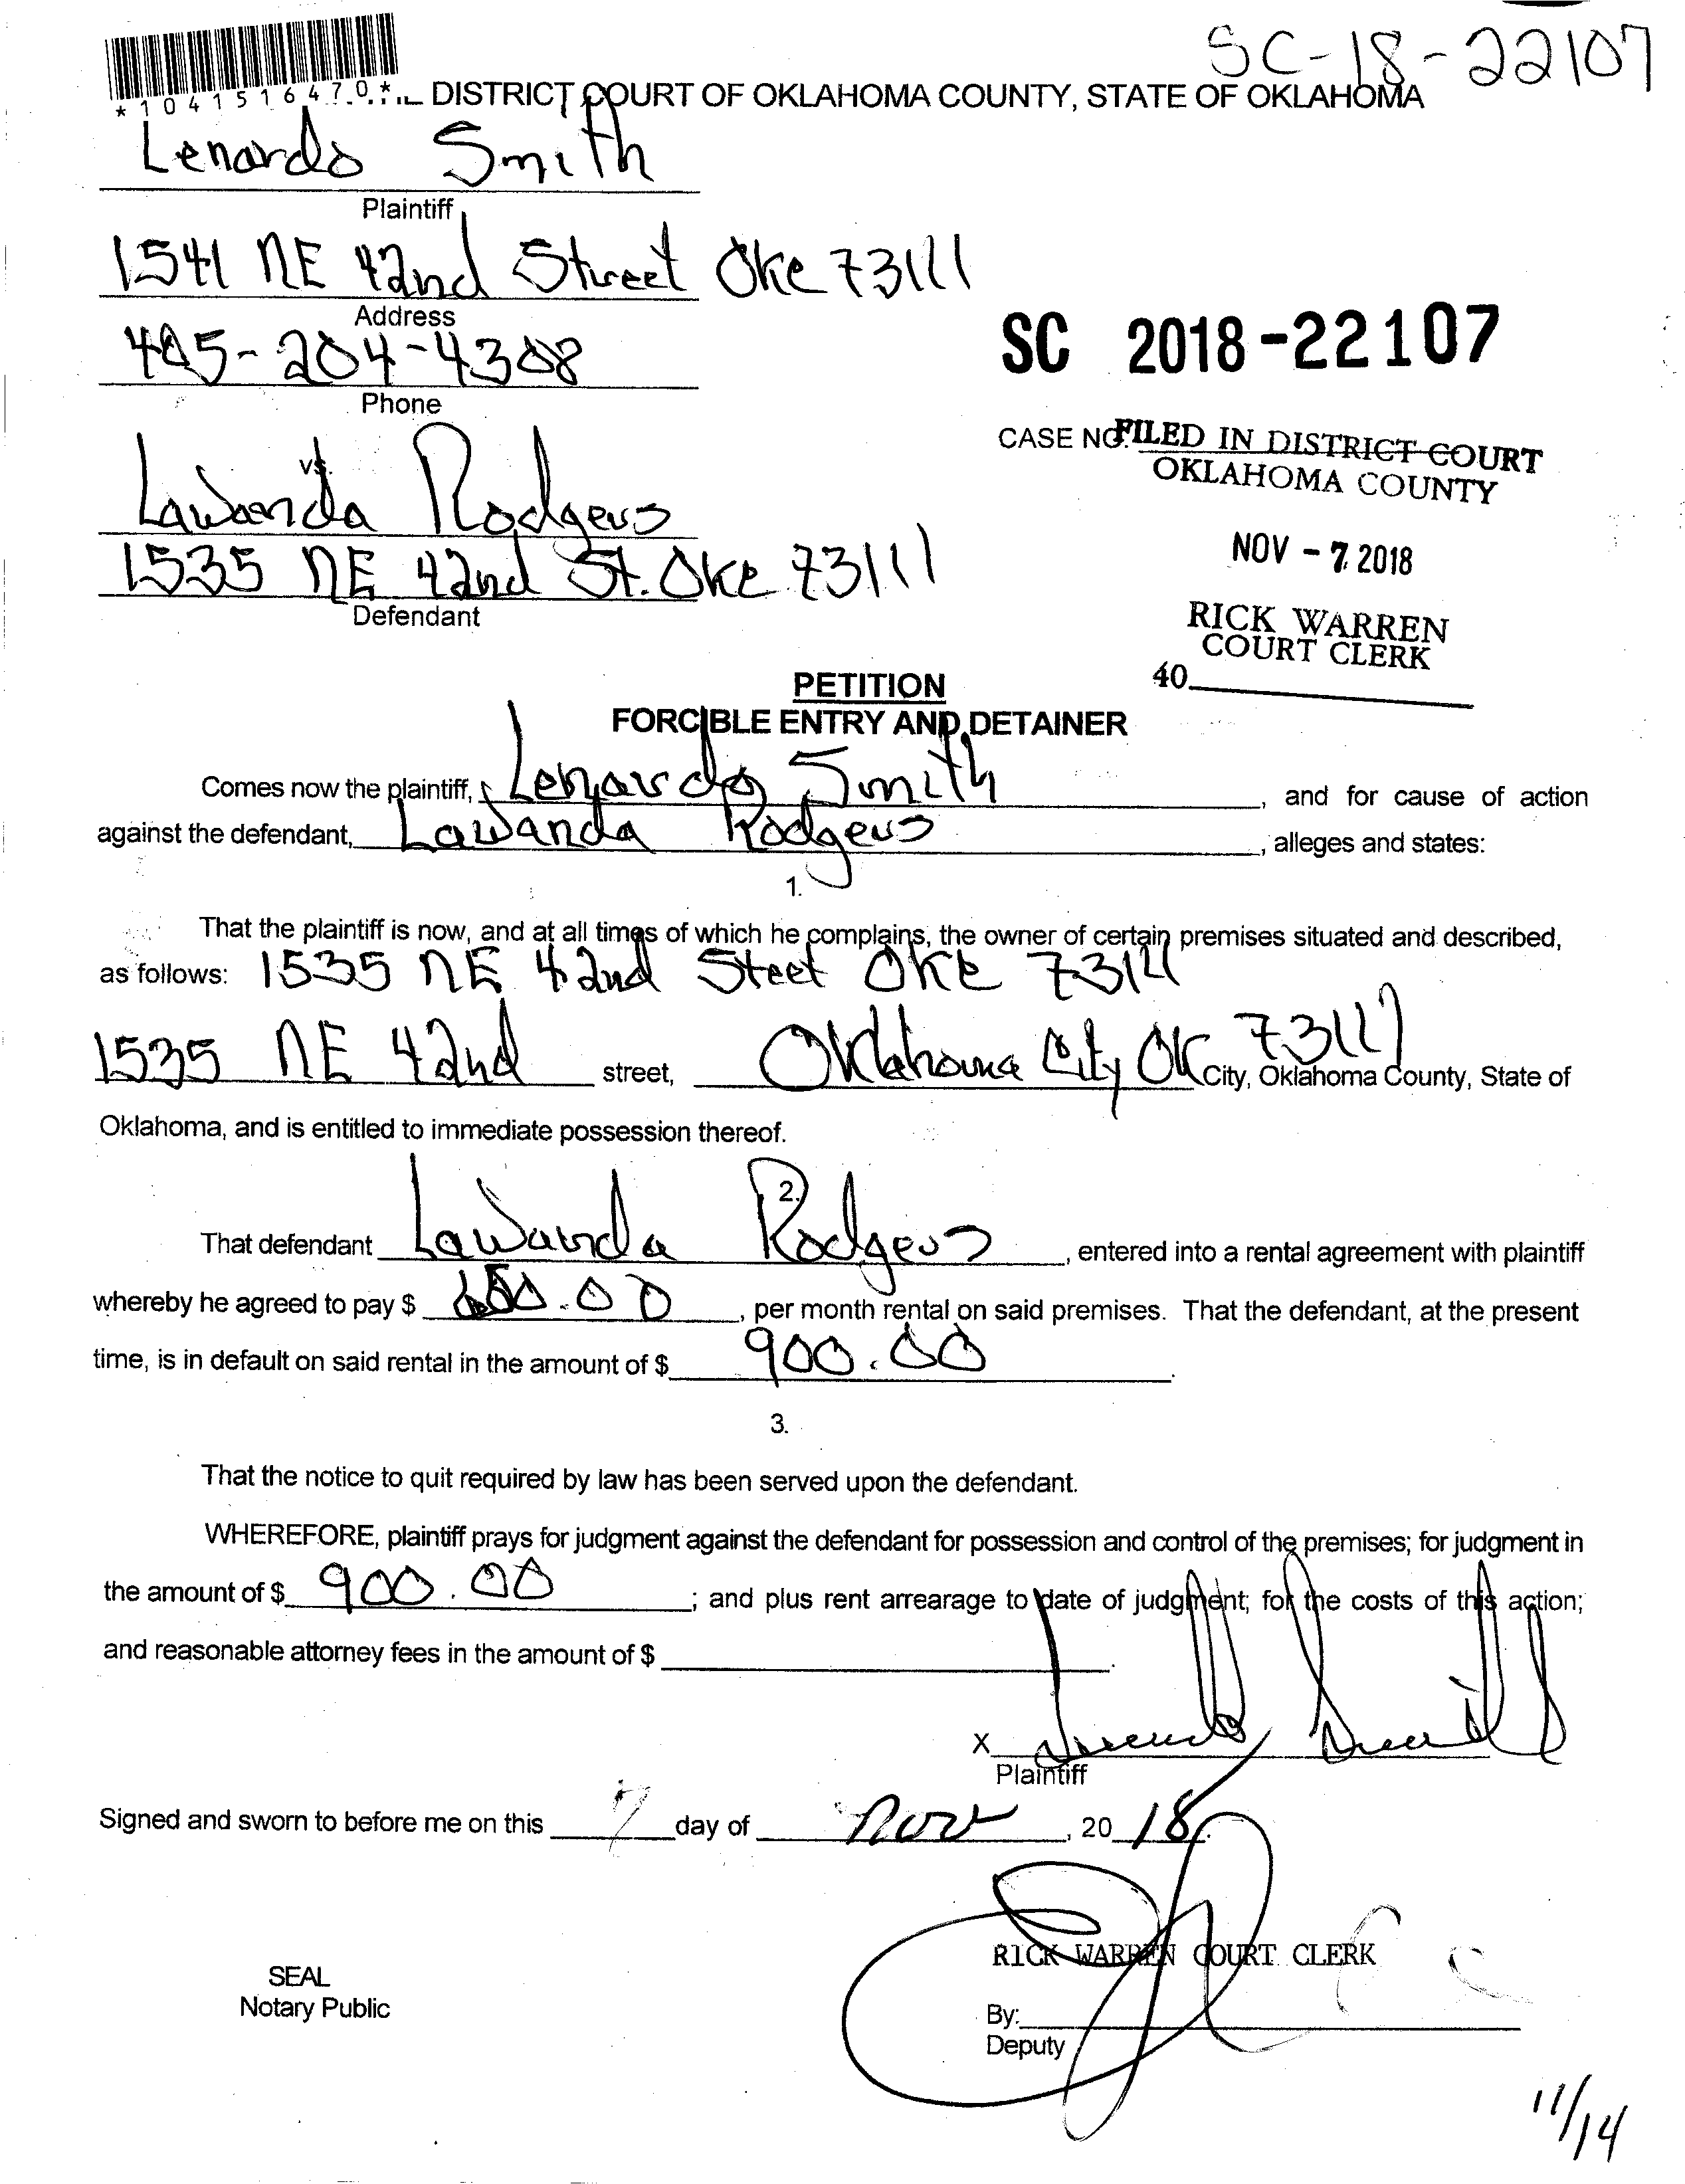 SC-18-22107
*1041516470*
DISTRICT COURT OF OKLAHOMA COUNTY, STATE OF OKLAHOMA
Lenardo Smith
Plaintiff
1541 NE 42nd Street Okc 73111
Address
405-204-4308
Phone
SC 2018-22107
CASE NO.
FILED IN DISTRICT COURT
OKLAHOMA COUNTY
NOV - 7 2018
RICK WARREN
COURT CLERK
40
vs.
Lawanda Rodgers
1535 NE 42nd St. Okc 73111
Defendant
PETITION
FORCIBLE ENTRY AND DETAINER
Comes now the plaintiff, Lenardo Smith, and for cause of action
against the defendant, Lawanda Rodgers, alleges and states:
1.
That the plaintiff is now, and at all times of which he complains, the owner of certain premises situated and described,
as follows: 1535 NE 42nd Steet Okc 73111
1535 NE 42nd street, Oklahoma City OK 73111 City, Oklahoma County, State of
Oklahoma, and is entitled to immediate possession thereof.
2.
That defendant Lawanda Rodgers, entered into a rental agreement with plaintiff
whereby he agreed to pay $ , per month rental on said premises. That the defendant, at the present
time, is in default on said rental in the amount of $ 900.00.
3.
That the notice to quit required by law has been served upon the defendant.
WHEREFORE, plaintiff prays for judgment against the defendant for possession and control of the premises; for judgment in
the amount of $ 900.00; and plus rent arrearage to date of judgment; for the costs of this action;
and reasonable attorney fees in the amount of $ .
X
Plaintiff
Signed and sworn to before me on this 7 day of Nov, 20 18.
RICK WARREN COURT CLERK
SEAL
Notary Public
By:
Deputy
11/14